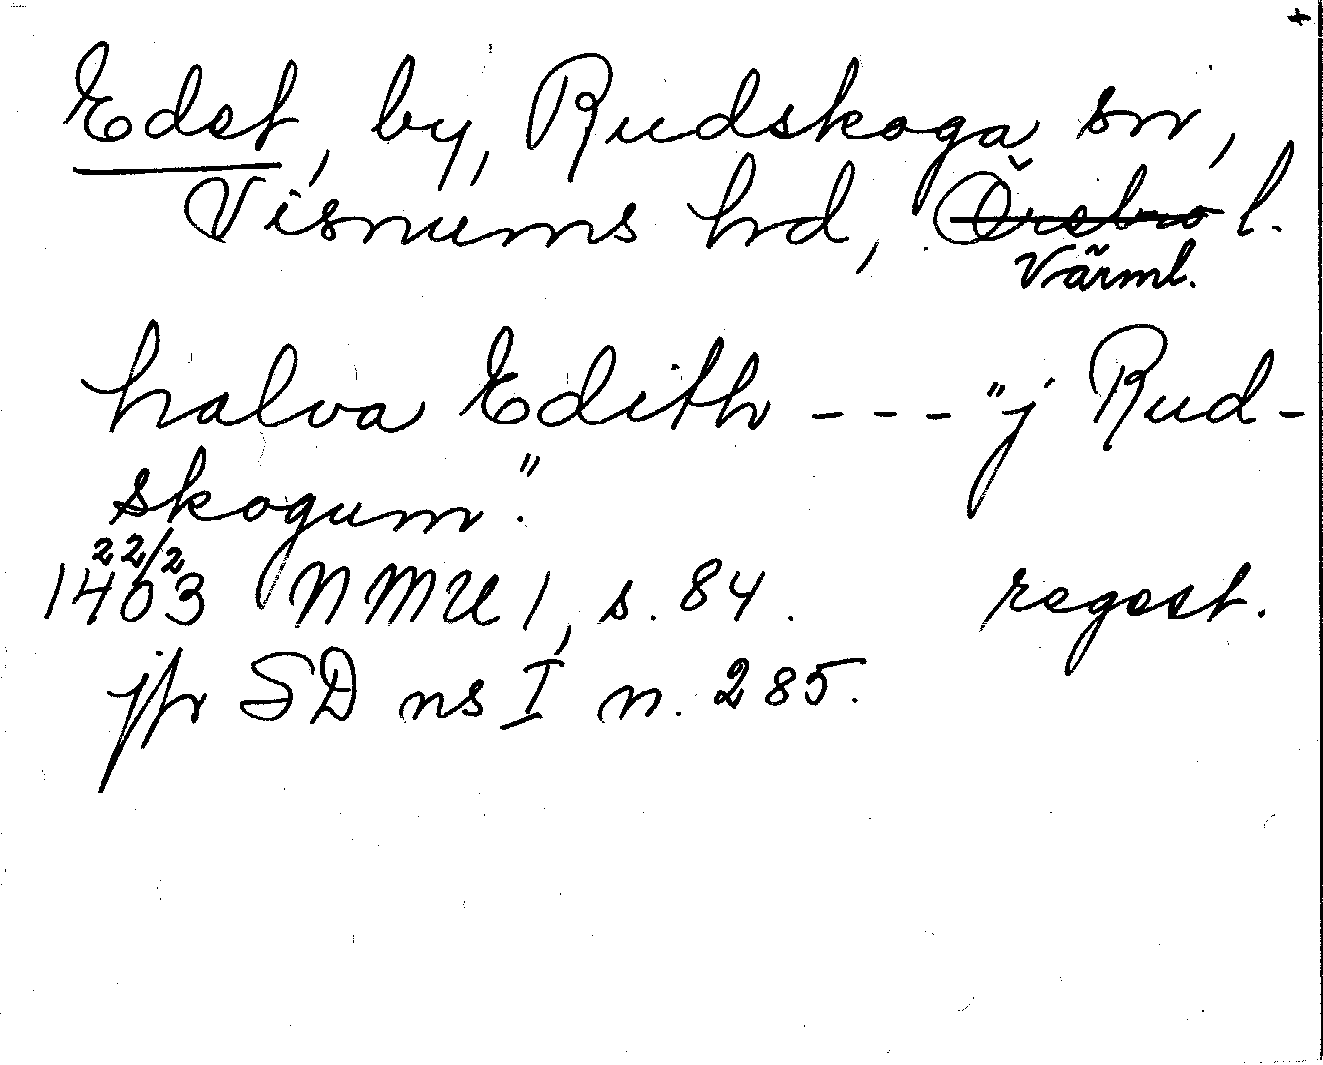 +
Edet, by, Rudskoga sn,
Visnums hd, Örebro l.
Värml.
halva Edith - - - "j Rud-
skogum".
22/2
1403 NMU 1, s. 84. regest.
jfr SD ns I n. 285.